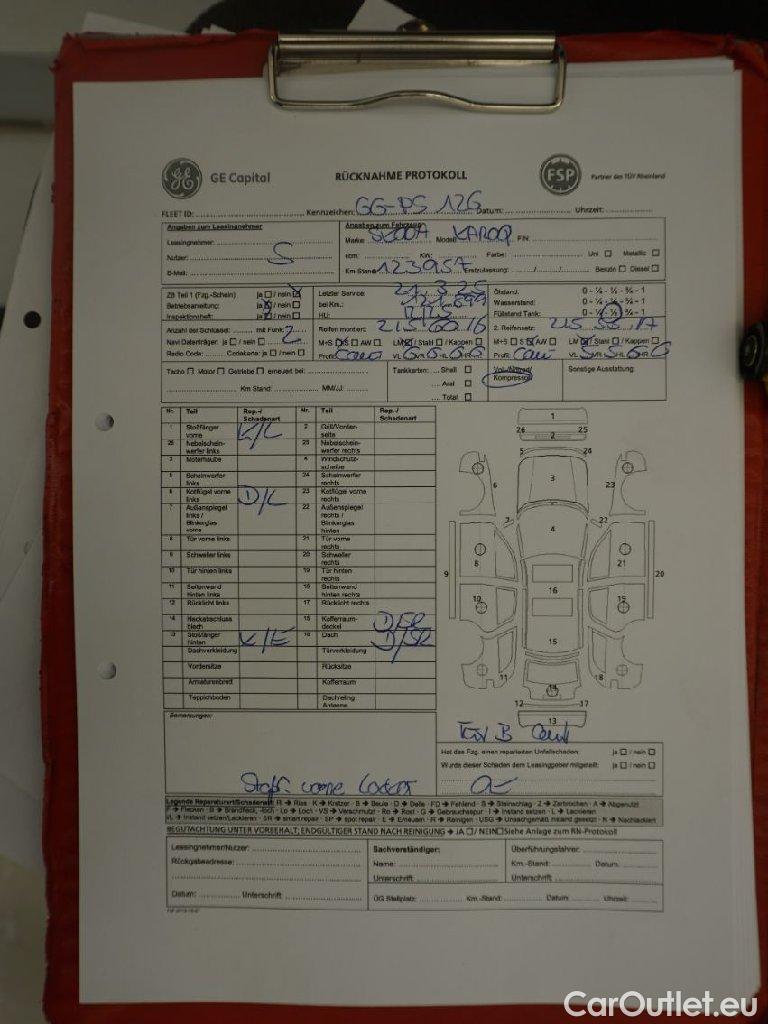 GE Capital
RÜCKNAHME PROTOKOLL
FSP
Partner des TÜV Rheinland
FLEET ID: Kennzeichen: GG-PS 126 Datum: Uhrzeit:
Angaben zum Leasingnehmer
Angaben zum Fahrzeug
Leasingnehmer:
Marke: SKODA Modell: KAROQ FIN:
Nutzer: S
ccm: KW: Farbe: Uni Metallic
E-Mail:
Km Stand: 123957 Erstzulassung: / / Benzin Diesel
ZB Teil 1 (Fzg.-Schein) ja / nein
Betriebsanleitung: ja / nein
Inspektionsheft: ja / nein
Letzter Service: 21.3.25
bei Km.:
HU:
Ölstand: 0 - ¼ - ½ - ¾ - 1
Wasserstand: 0 - ¼ - ½ - ¾ - 1
Füllstand Tank: 0 - ¼ - ½ - ¾ - 1
Anzahl der Schlüssel: mit Funk: 2
Navi Datenträger: ja / nein
Radio Code: Codekarte: ja / nein
Reifen montiert: 215.60.16
M+S S AW LM / Stahl / Kappen
Profil:
2. Reifensatz: 215 55 17
M+S S AW LM / Stahl / Kappen
Profil:
Tacho Motor Getriebe erneuert bei:
Km Stand: MM/JJ:
Tankkarten: Shell
Aral
Total
Kompressor
Sonstige Ausstattung:
Nr. Teil Rep.-/ Schadenart Nr. Teil Rep.-/ Schadenart
1 Stoßfänger vorne K/L 2 Grill/Vorderseite
26 Nebelscheinwerfer links 25 Nebelscheinwerfer rechts
3 Motorhaube 4 Windschutzscheibe
5 Scheinwerfer links 24 Scheinwerfer rechts
6 Kotflügel vorne links D/L 23 Kotflügel vorne rechts
7 Außenspiegel links / Blinkerglas vorne 22 Außenspiegel rechts / Blinkerglas hinten
8 Tür vorne links 21 Tür vorne rechts
9 Schweller links 20 Schweller rechts
10 Tür hinten links 19 Tür hinten rechts
11 Seitenwand hinten links 18 Seitenwand hinten rechts
12 Rücklicht links 17 Rücklicht rechts
14 Heckabschlussblech 15 Kofferraumdeckel
13 Stoßfänger hinten K/E 16 Dach D/SR
Dachverkleidung Türverkleidung
Vordersitze Rücksitze
Armaturenbrett Kofferraum
Teppichboden Dachreling Antenne
Bemerkungen:
Hat das Fzg. einen reparierten Unfallschaden: ja / nein
Wurde dieser Schaden dem Leasinggeber mitgeteilt: ja / nein
Legende Reparaturart/Schadenart: R → Riss · K → Kratzer · B → Beule · D → Delle · FD → Fehlend · S → Steinschlag · Z → Zerbrochen · A → Abgenutzt
F → Flecken · B → Brandfleck, -loch · Lo → Loch · VS → Verschmutzt · Ro → Rost · G → Gebrauchsspur · I → Instand setzen · L → Lackieren
VL → Instand setzen/Lackieren · SR → smart repair · SP → spot repair · E → Erneuern · R → Reinigen · USG → Unsachgemäß instand gesetzt · N → Nachlackiert
BEGUTACHTUNG UNTER VORBEHALT; ENDGÜLTIGER STAND NACH REINIGUNG → JA / NEIN Siehe Anlage zum RN-Protokoll
Leasingnehmer/Nutzer:
Rückgabeadresse:
Datum: Unterschrift:
Sachverständiger:
Name:
Unterschrift
Überführungsfahrer:
Km.-Stand: Datum:
Unterschrift
ÜG Stellplatz: Km.-Stand: Datum: Uhrzeit:
CarOutlet.eu